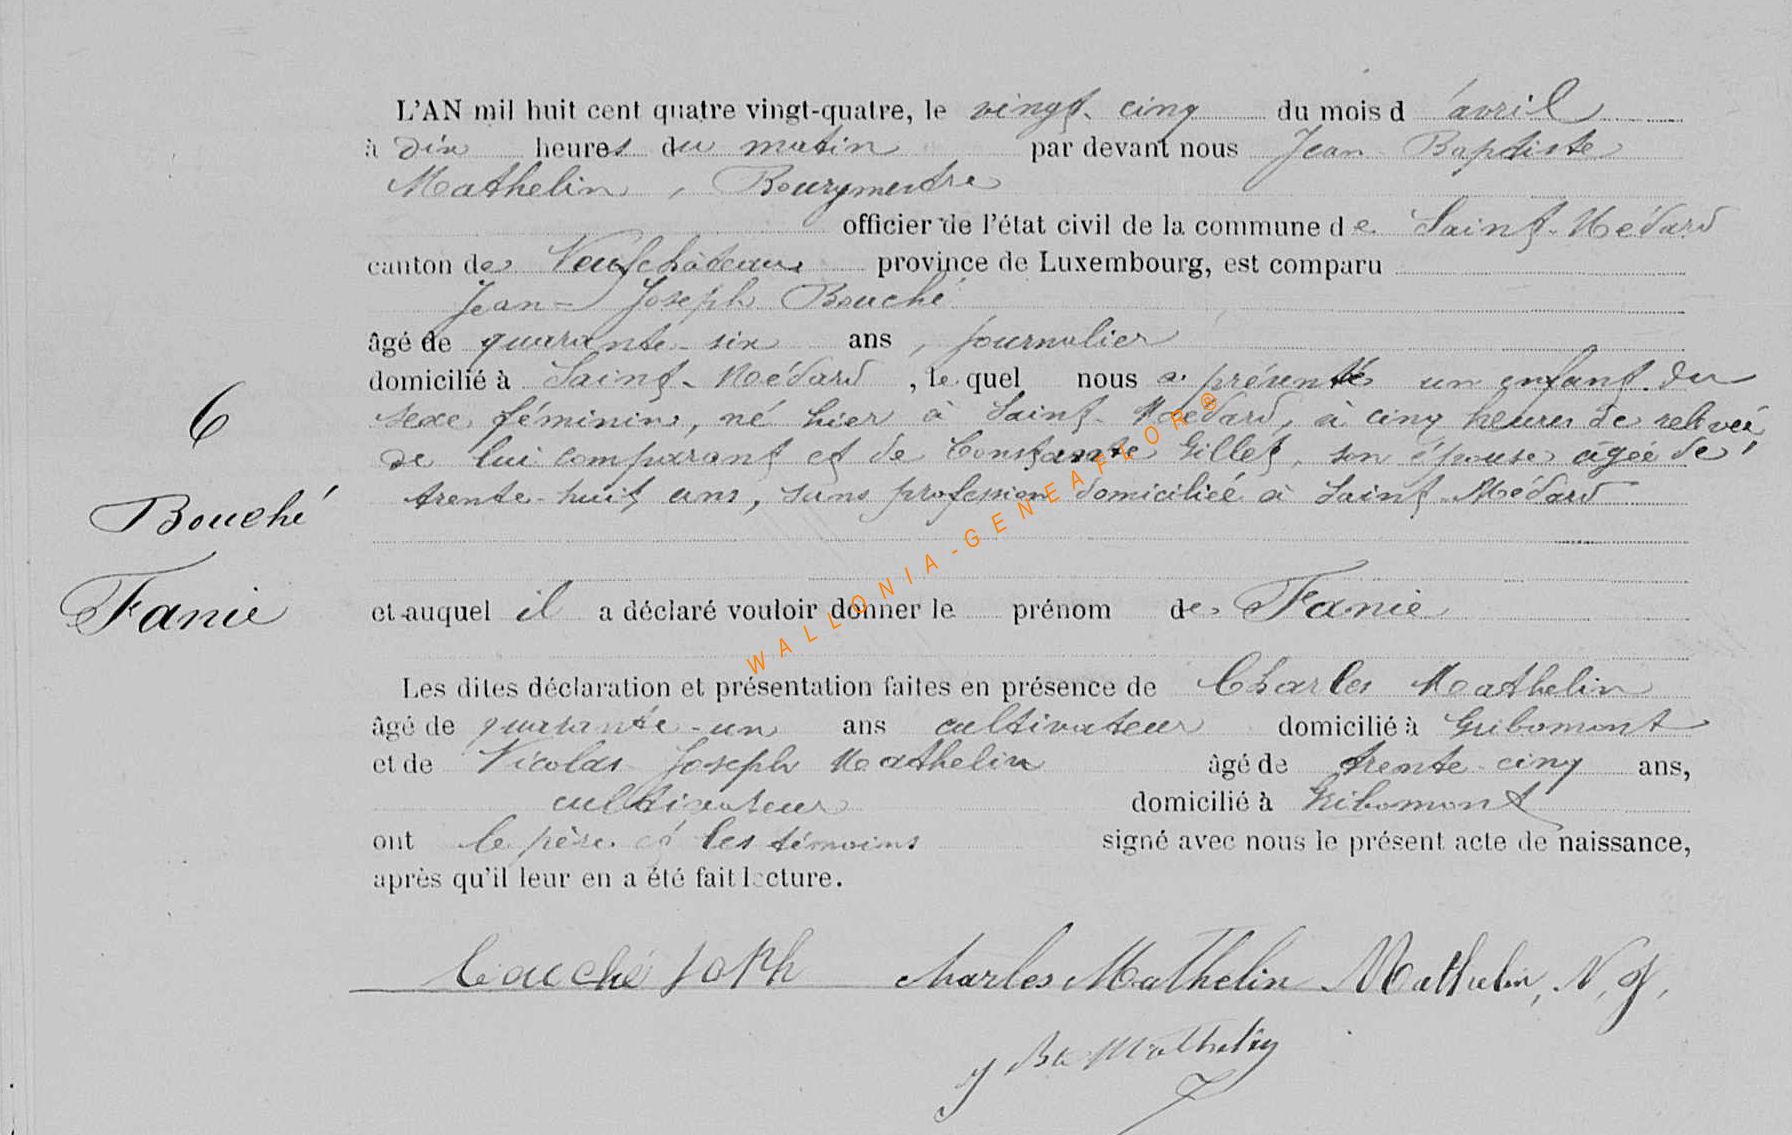 L'AN mil huit cent quatre vingt-quatre, le vingt-cinq du mois d'avril
à dix heures du matin par devant nous Jean Baptiste
Mathelin, Bourgmestre
officier de l'état civil de la commune de Saint-Médard
canton de Neufchâteau province de Luxembourg, est comparu
Jean-Joseph Bouché
âgé de quarante-six ans, journalier
domicilié à Saint-Médard, lequel nous a présenté un enfant du
6
sexe féminin, né hier à Saint-Médard, à cinq heures de relevée
de lui comparant et de Constante Gillet, son épouse âgée de
trente-huit ans, sans profession domiciliée à Saint-Médard
Bouché
Fanie
et auquel il a déclaré vouloir donner le prénom de Fanie
Les dites déclaration et présentation faites en présence de Charles Mathelin
âgé de quarante-un ans cultivateur domicilié à Gribomont
et de Nicolas Joseph Mathelin âgé de trente-cinq ans,
cultivateur domicilié à Gribomont
ont le père et les témoins signé avec nous le présent acte de naissance,
après qu'il leur en a été fait lecture.
bouché Joseph Charles Mathelin Mathelin, N. J.
J Bte Mathelin
WALLONIA-GENEAFLOR®